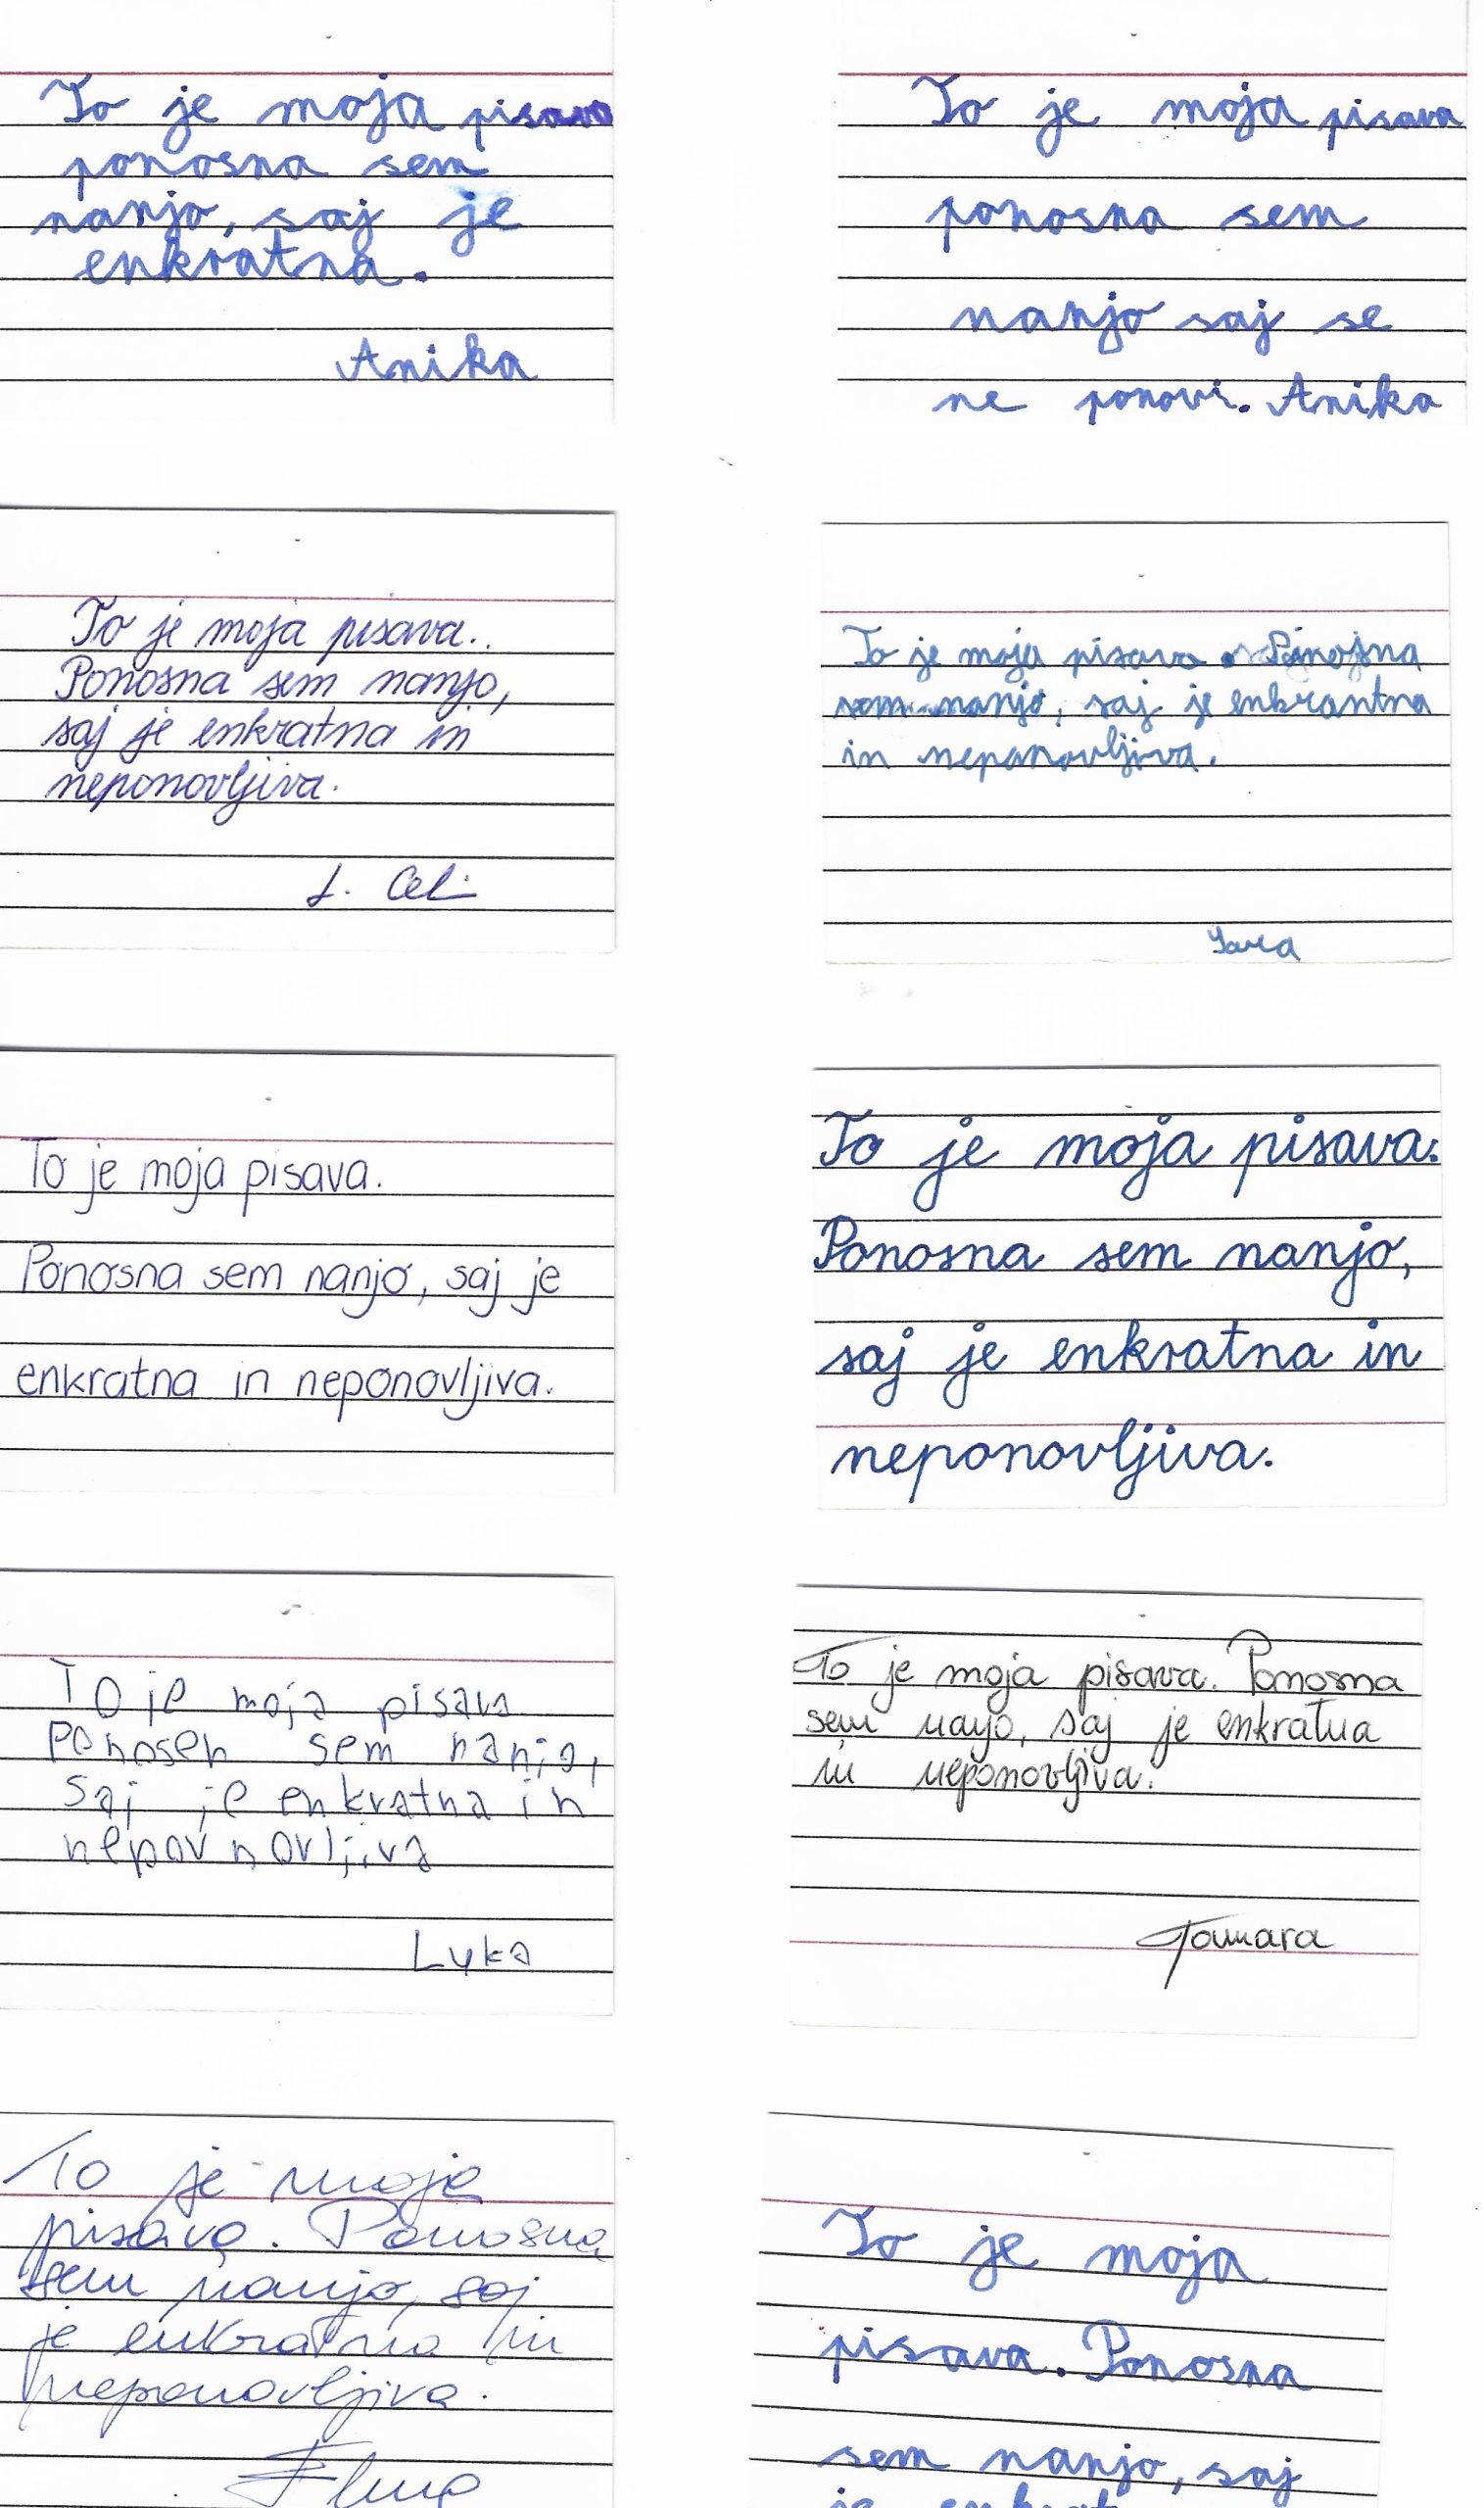 To je moja pisava
ponosna sem
nanjo, saj je
enkratna.
Anika
To je moja pisava
ponosna sem
nanjo saj se
ne ponovi. Anika
To je moja pisava..
Ponosna sem nanjo,
saj je enkratna in
neponovljiva.
To je moja pisava.
sem nanjo, saj je enkrantna
in neponovljiva.
To je moja pisava.
Ponosna sem nanjo, saj je
enkratna in neponovljiva.
To je moja pisava.
Ponosna sem nanjo,
saj je enkratna in
neponovljiva.
To je moja pisava
Ponosen sem nanjo,
saj je enkratna in
nepov novljiva
Luka
To je moja pisava. Ponosna
sem nanjo, saj je enkratna
in neponovljiva.
Tamara
To je moja
pisava. Ponosna
sem nanjo, saj
je enkratna in
neponovljiva.
To je moja
pisava. Ponosna
sem nanjo, saj